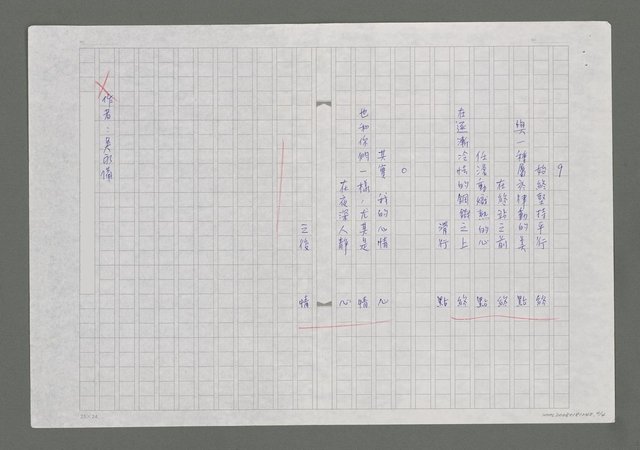 9
始終堅持平行 終
與一種屬於律動的美 點
在終站之前 終
任滾動熾熱的心 點
在逐漸冷怯的鋼鐵之上 終
滑行 點
0
其實 我的心情 心
也和你們一樣,尤其是 情
在夜深人靜 心
之後 情
作者:吳承儒
25×24